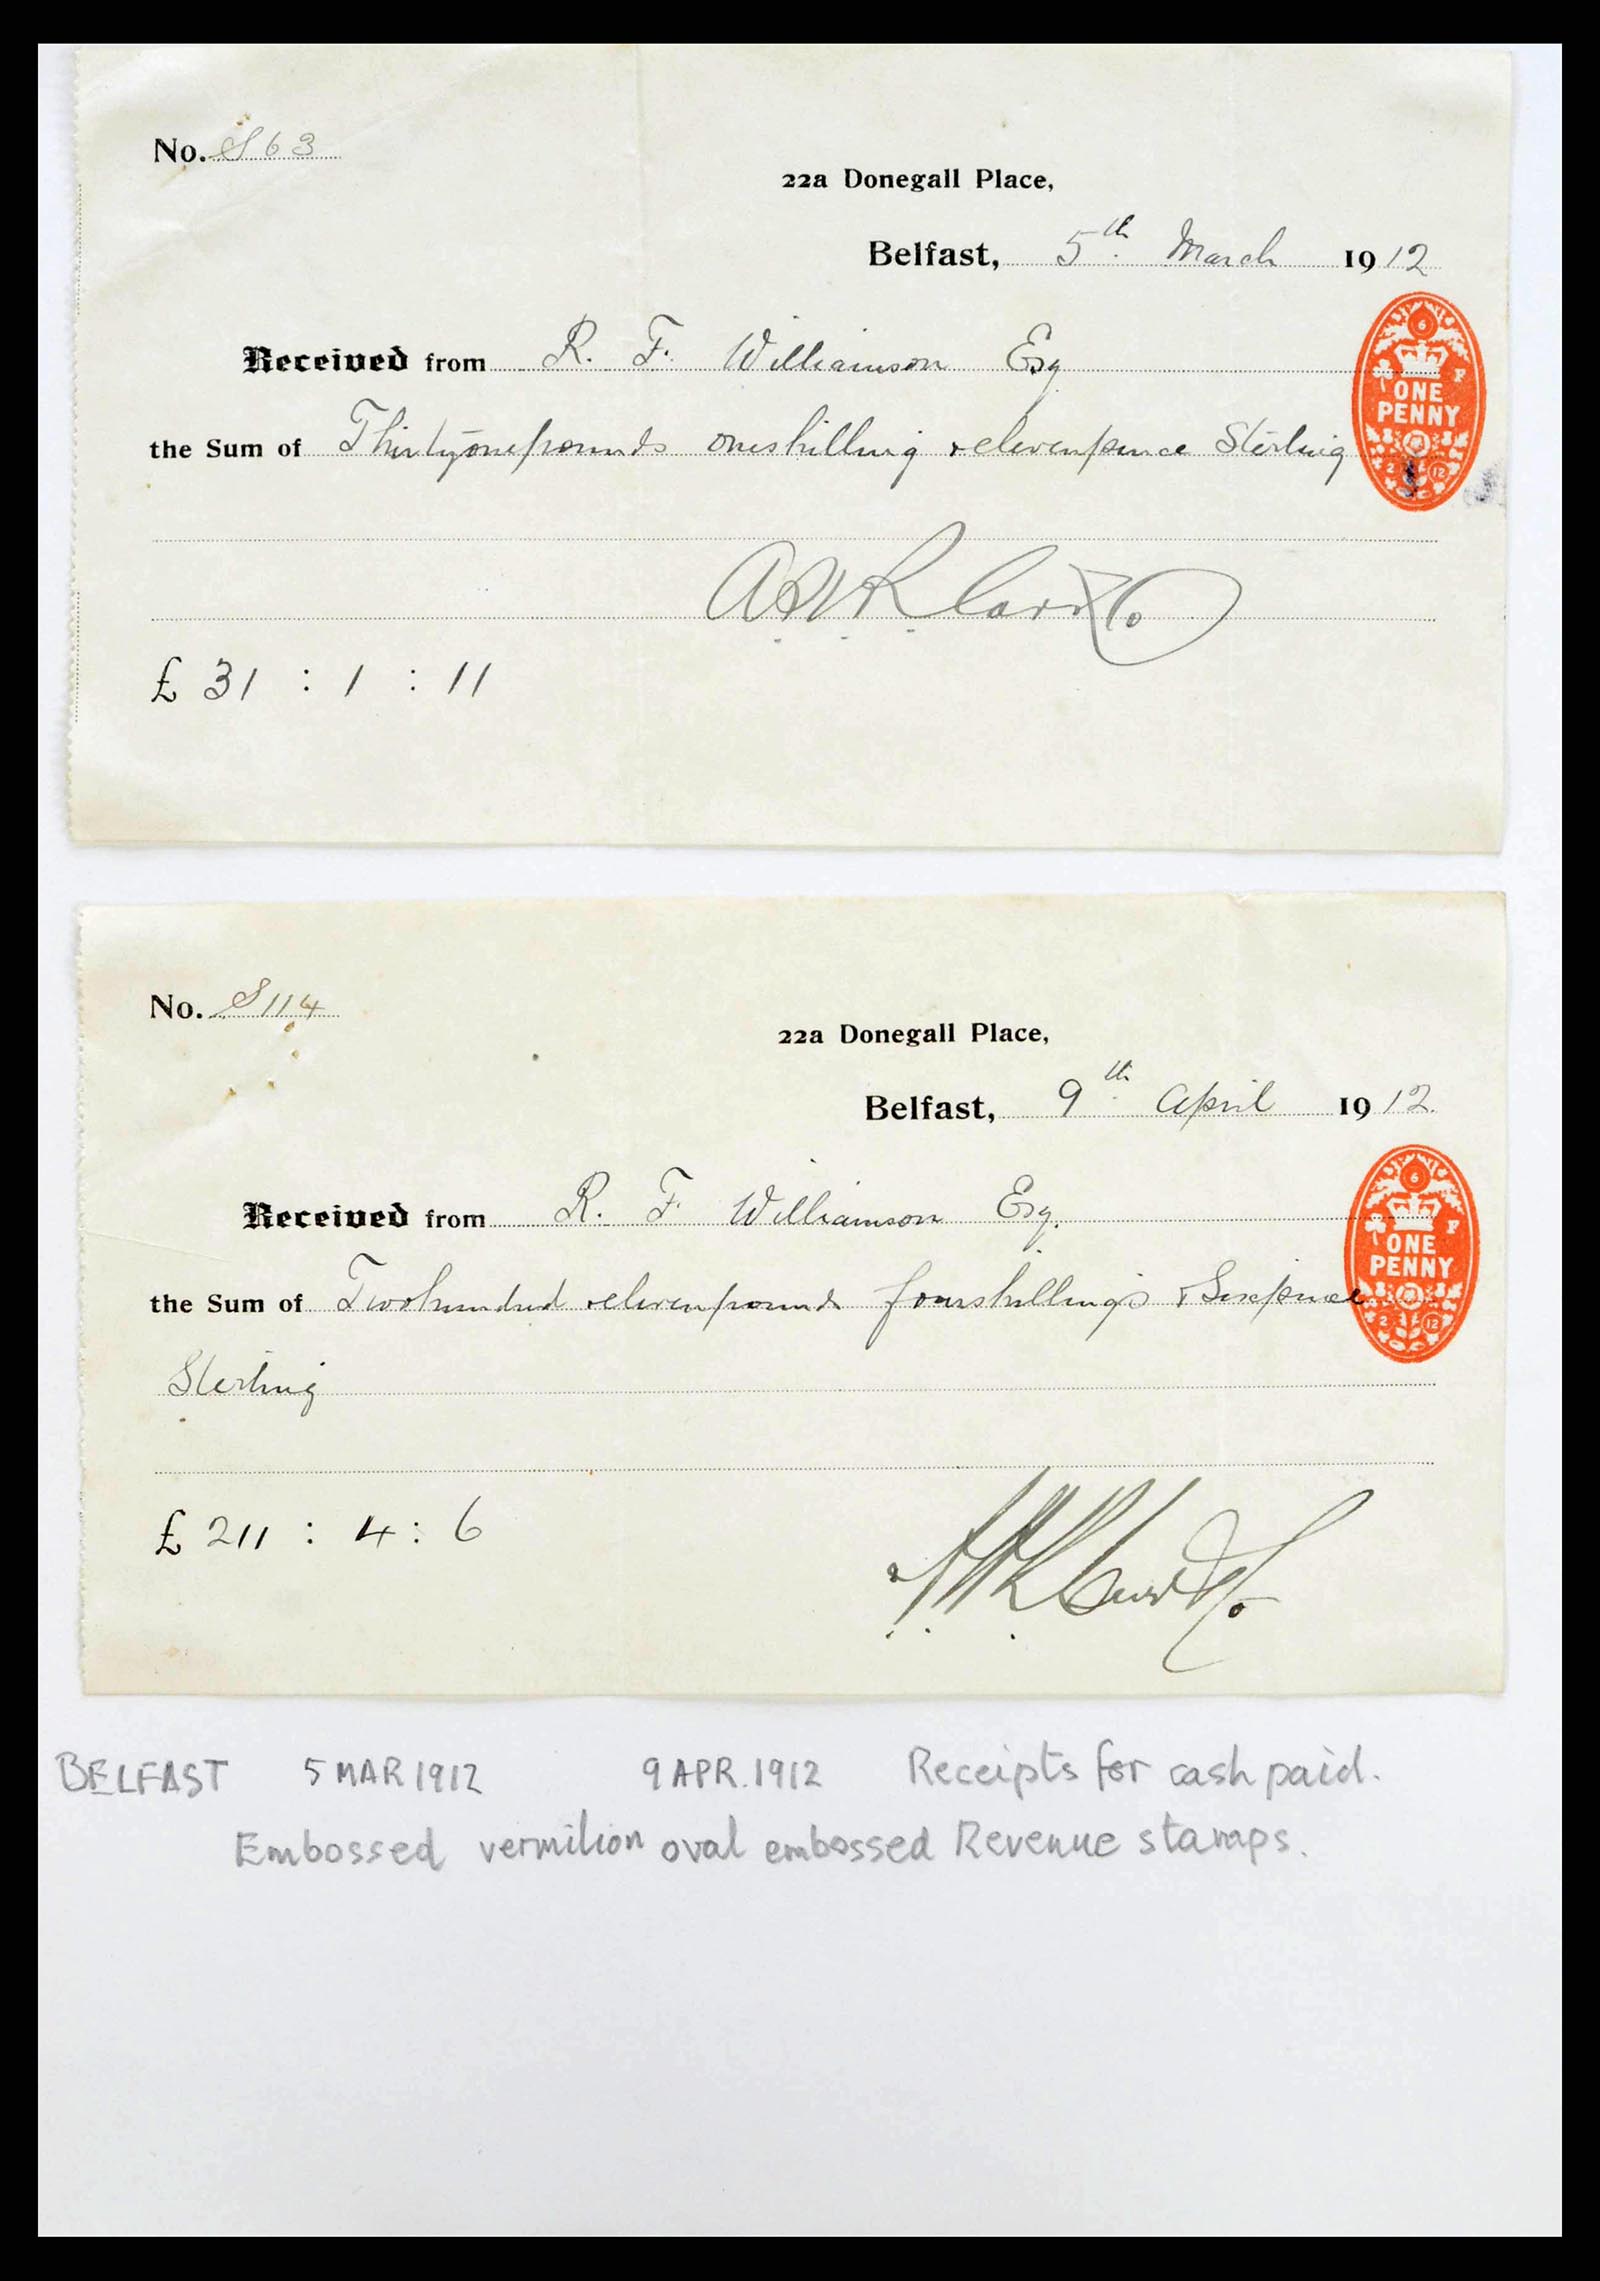 No. S63
22a Donegall Place,
Belfast, 5th March 1912
Received from R. F. Williamson Esq
6
F
ONE
PENNY
2 12
the Sum of Thirtyonepounds oneshilling & elevenpence Sterling
£ 31 : 1 : 11
No. S114
22a Donegall Place,
Belfast, 9th April 1912
Received from R. F. Williamson Esq.
6
F
ONE
PENNY
2 12
the Sum of Twohundred & elevenpounds fourshillings & Sixpence
Sterling
£ 211 : 4 : 6
BELFAST 5 MAR 1912 9 APR. 1912 Receipts for cash paid.
Embossed vermilion oval embossed Revenue stamps.